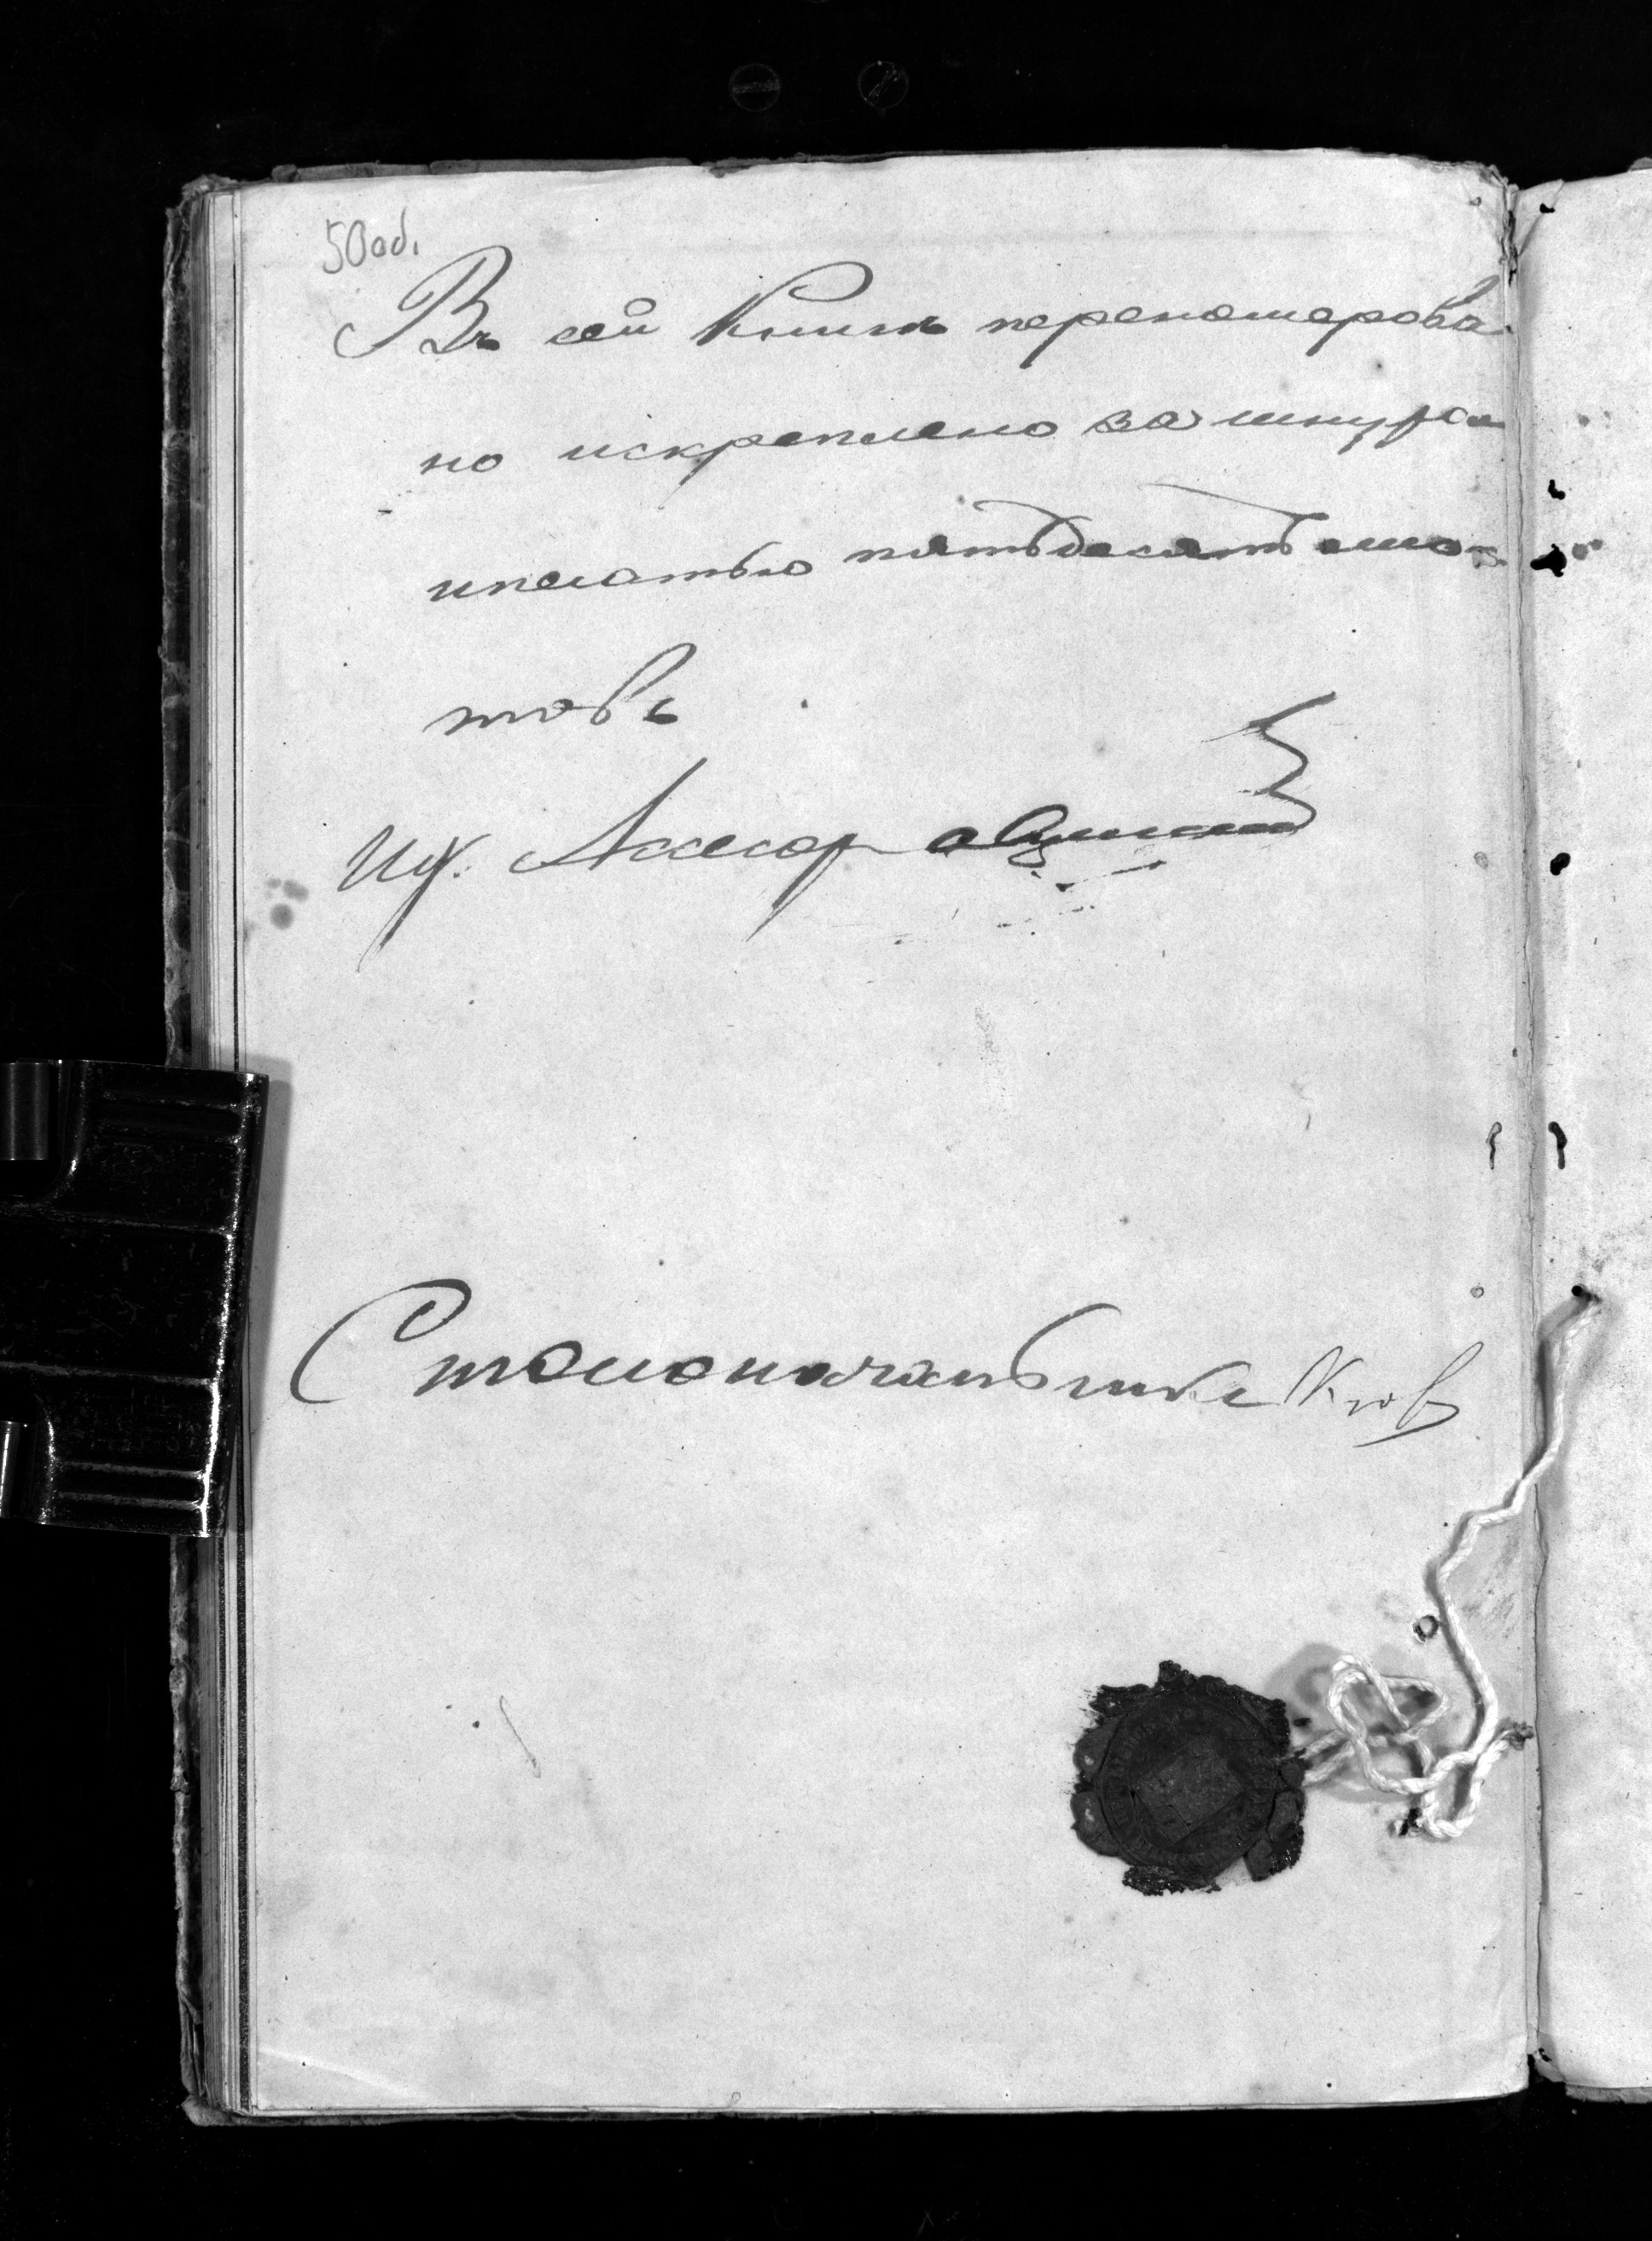 50 об.
Въ сей Книгѣ перенамерова
но искреплено за шнуром
ипечатью пятьдесятъ лис
товъ
Асесор
Столоначальникъ